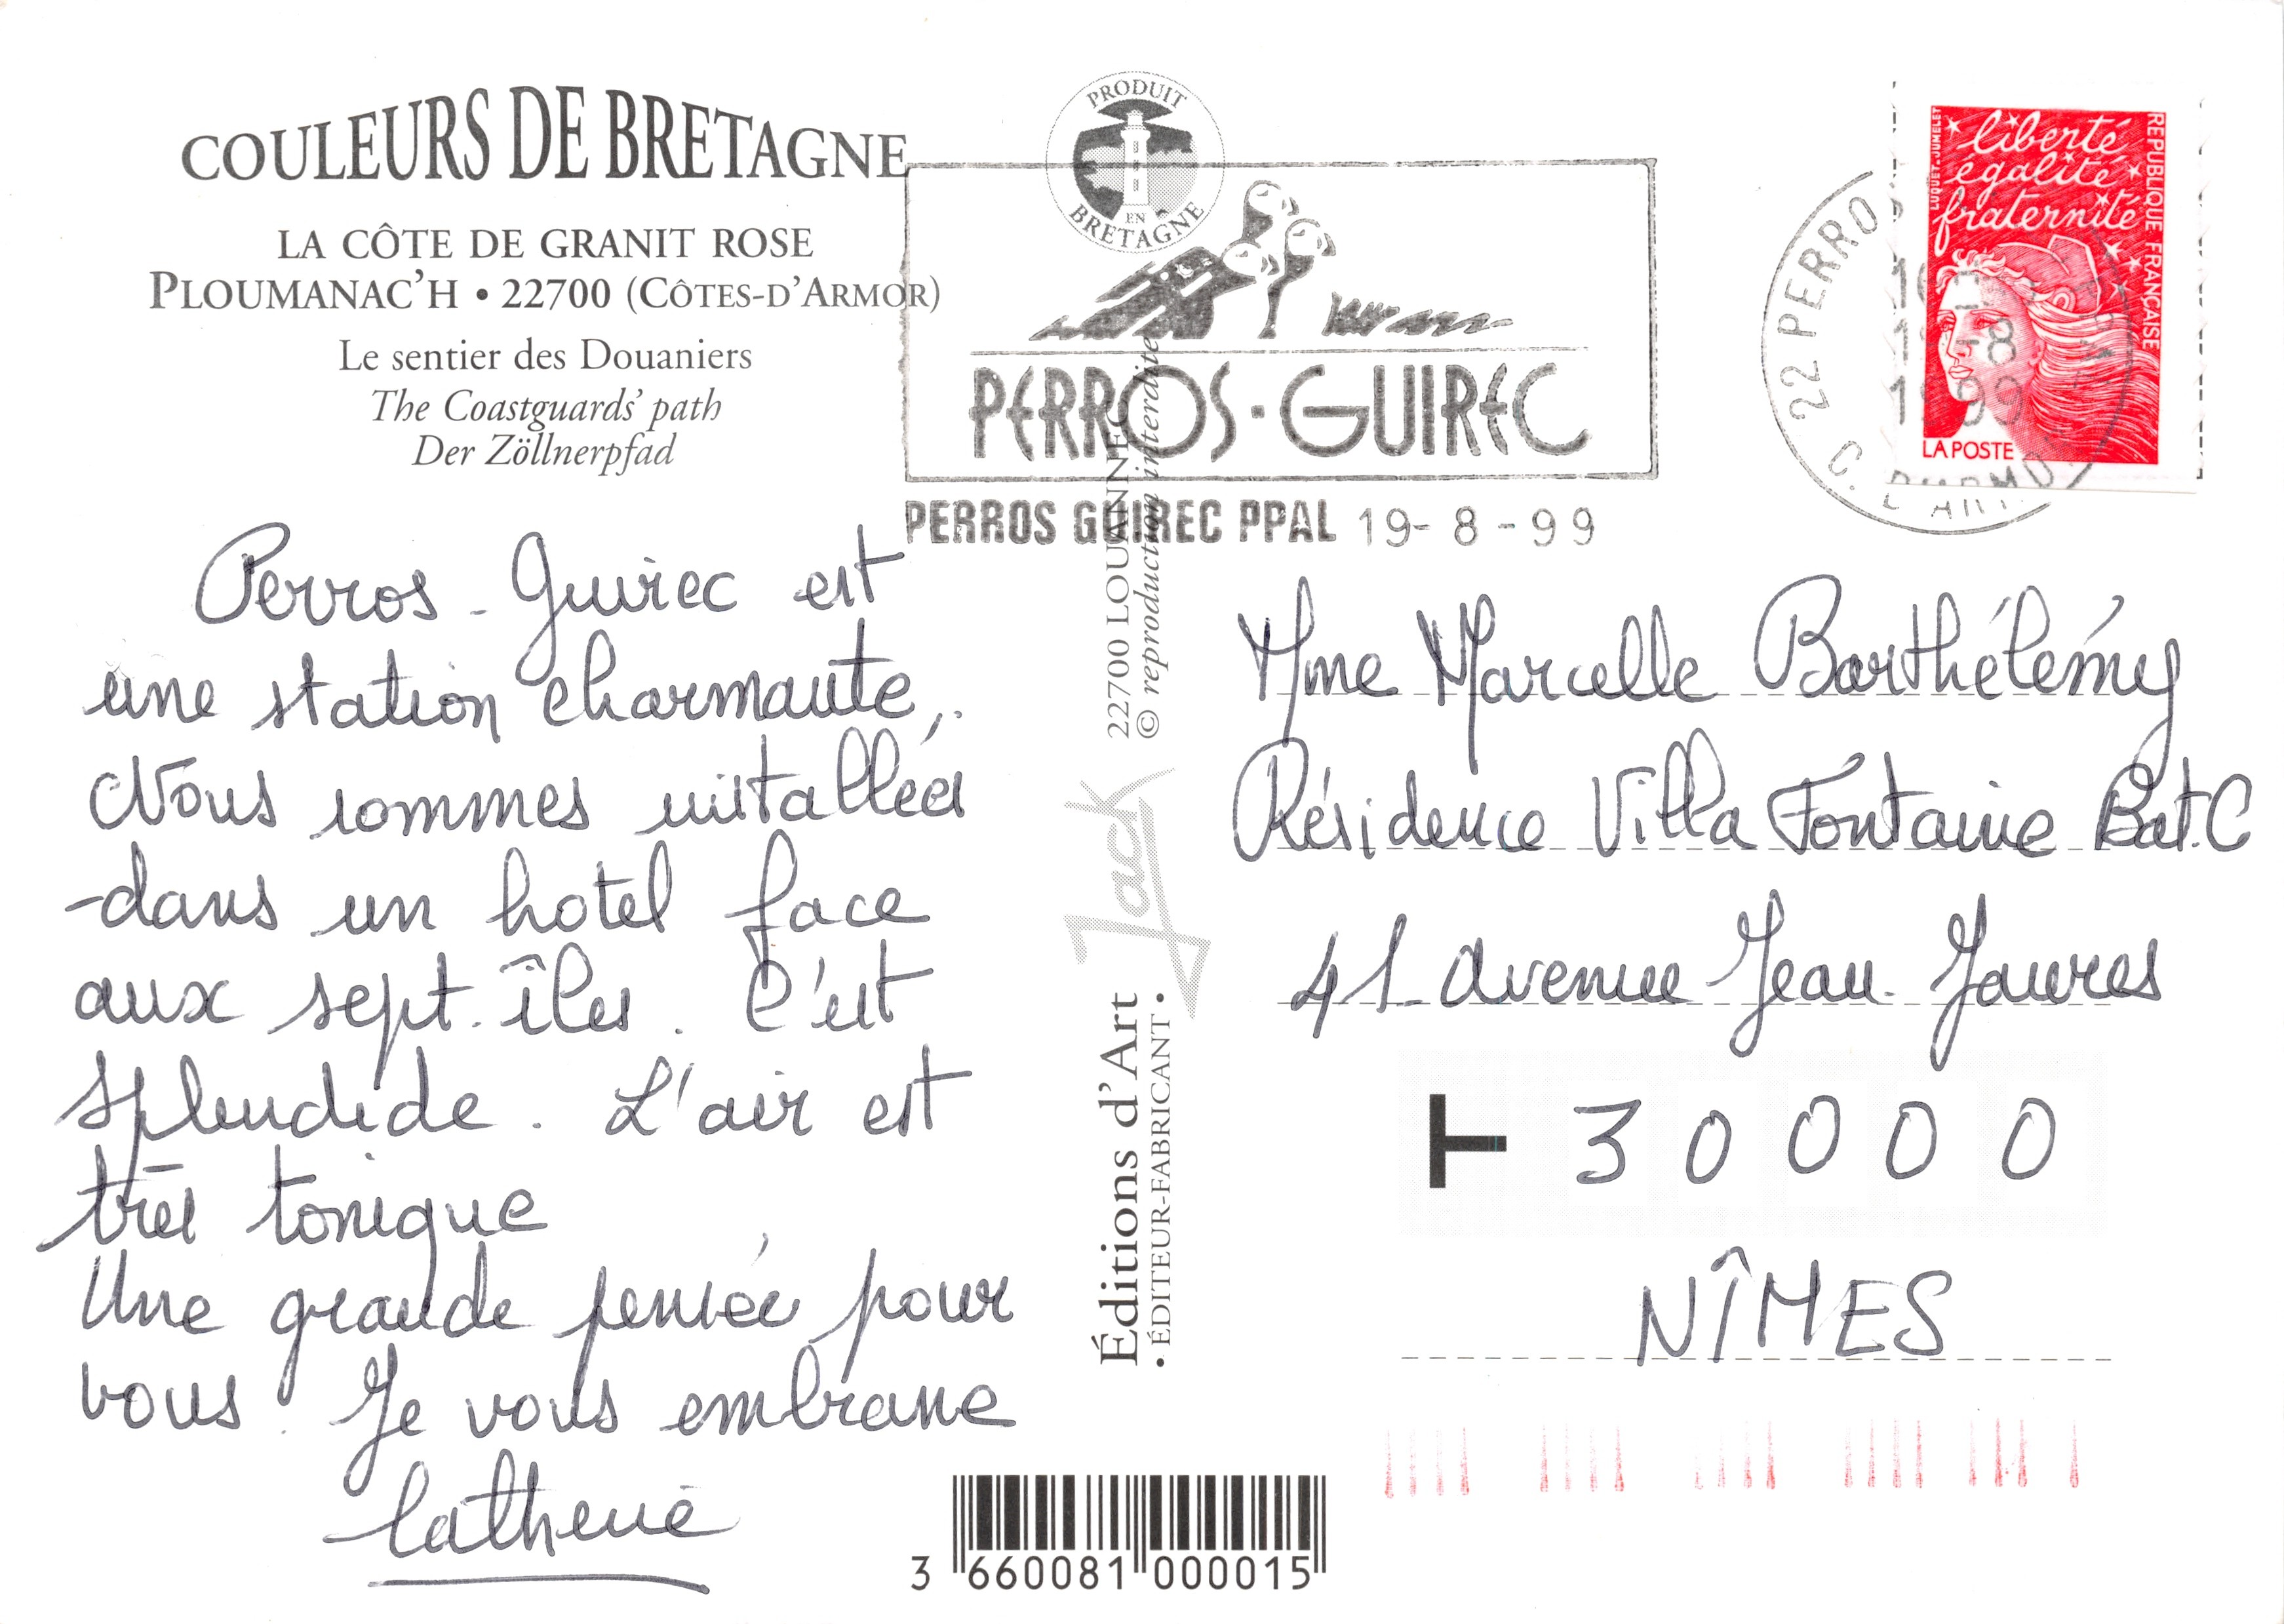 COULEURS DE BRETAGNE
LA CÔTE DE GRANIT ROSE
PLOUMANAC'H • 22700 (CÔTES-D'ARMOR)
Le sentier des Douaniers
The Coastguards' path
Der Zöllnerpfad
PRODUIT
EN
BRETAGNE
PERROS-GUIREC
PERROS GUIREC PPAL 19-8-99
22 PERRO
C. D'ARMO
1999
liberté
égalité
fraternité
RÉPUBLIQUE FRANÇAISE
LUQUET-JUMELET
LA POSTE
Perros-Guirec est
une station charmante.
Nous sommes installées
dans un hotel face
aux sept-îles. C'est
splendide. L'air est
très tonique
Une grande pensée pour
vous. Je vous embrasse
Éditions d'Art Jack 22700 LOUANNEC
• ÉDITEUR-FABRICANT • © reproduction interdite
Mme Marcelle Barthélémy
Résidence Villa Fontaine Bat. C
41 Avenue Jean Jaures
30000
NÎMES
3 660081 000015